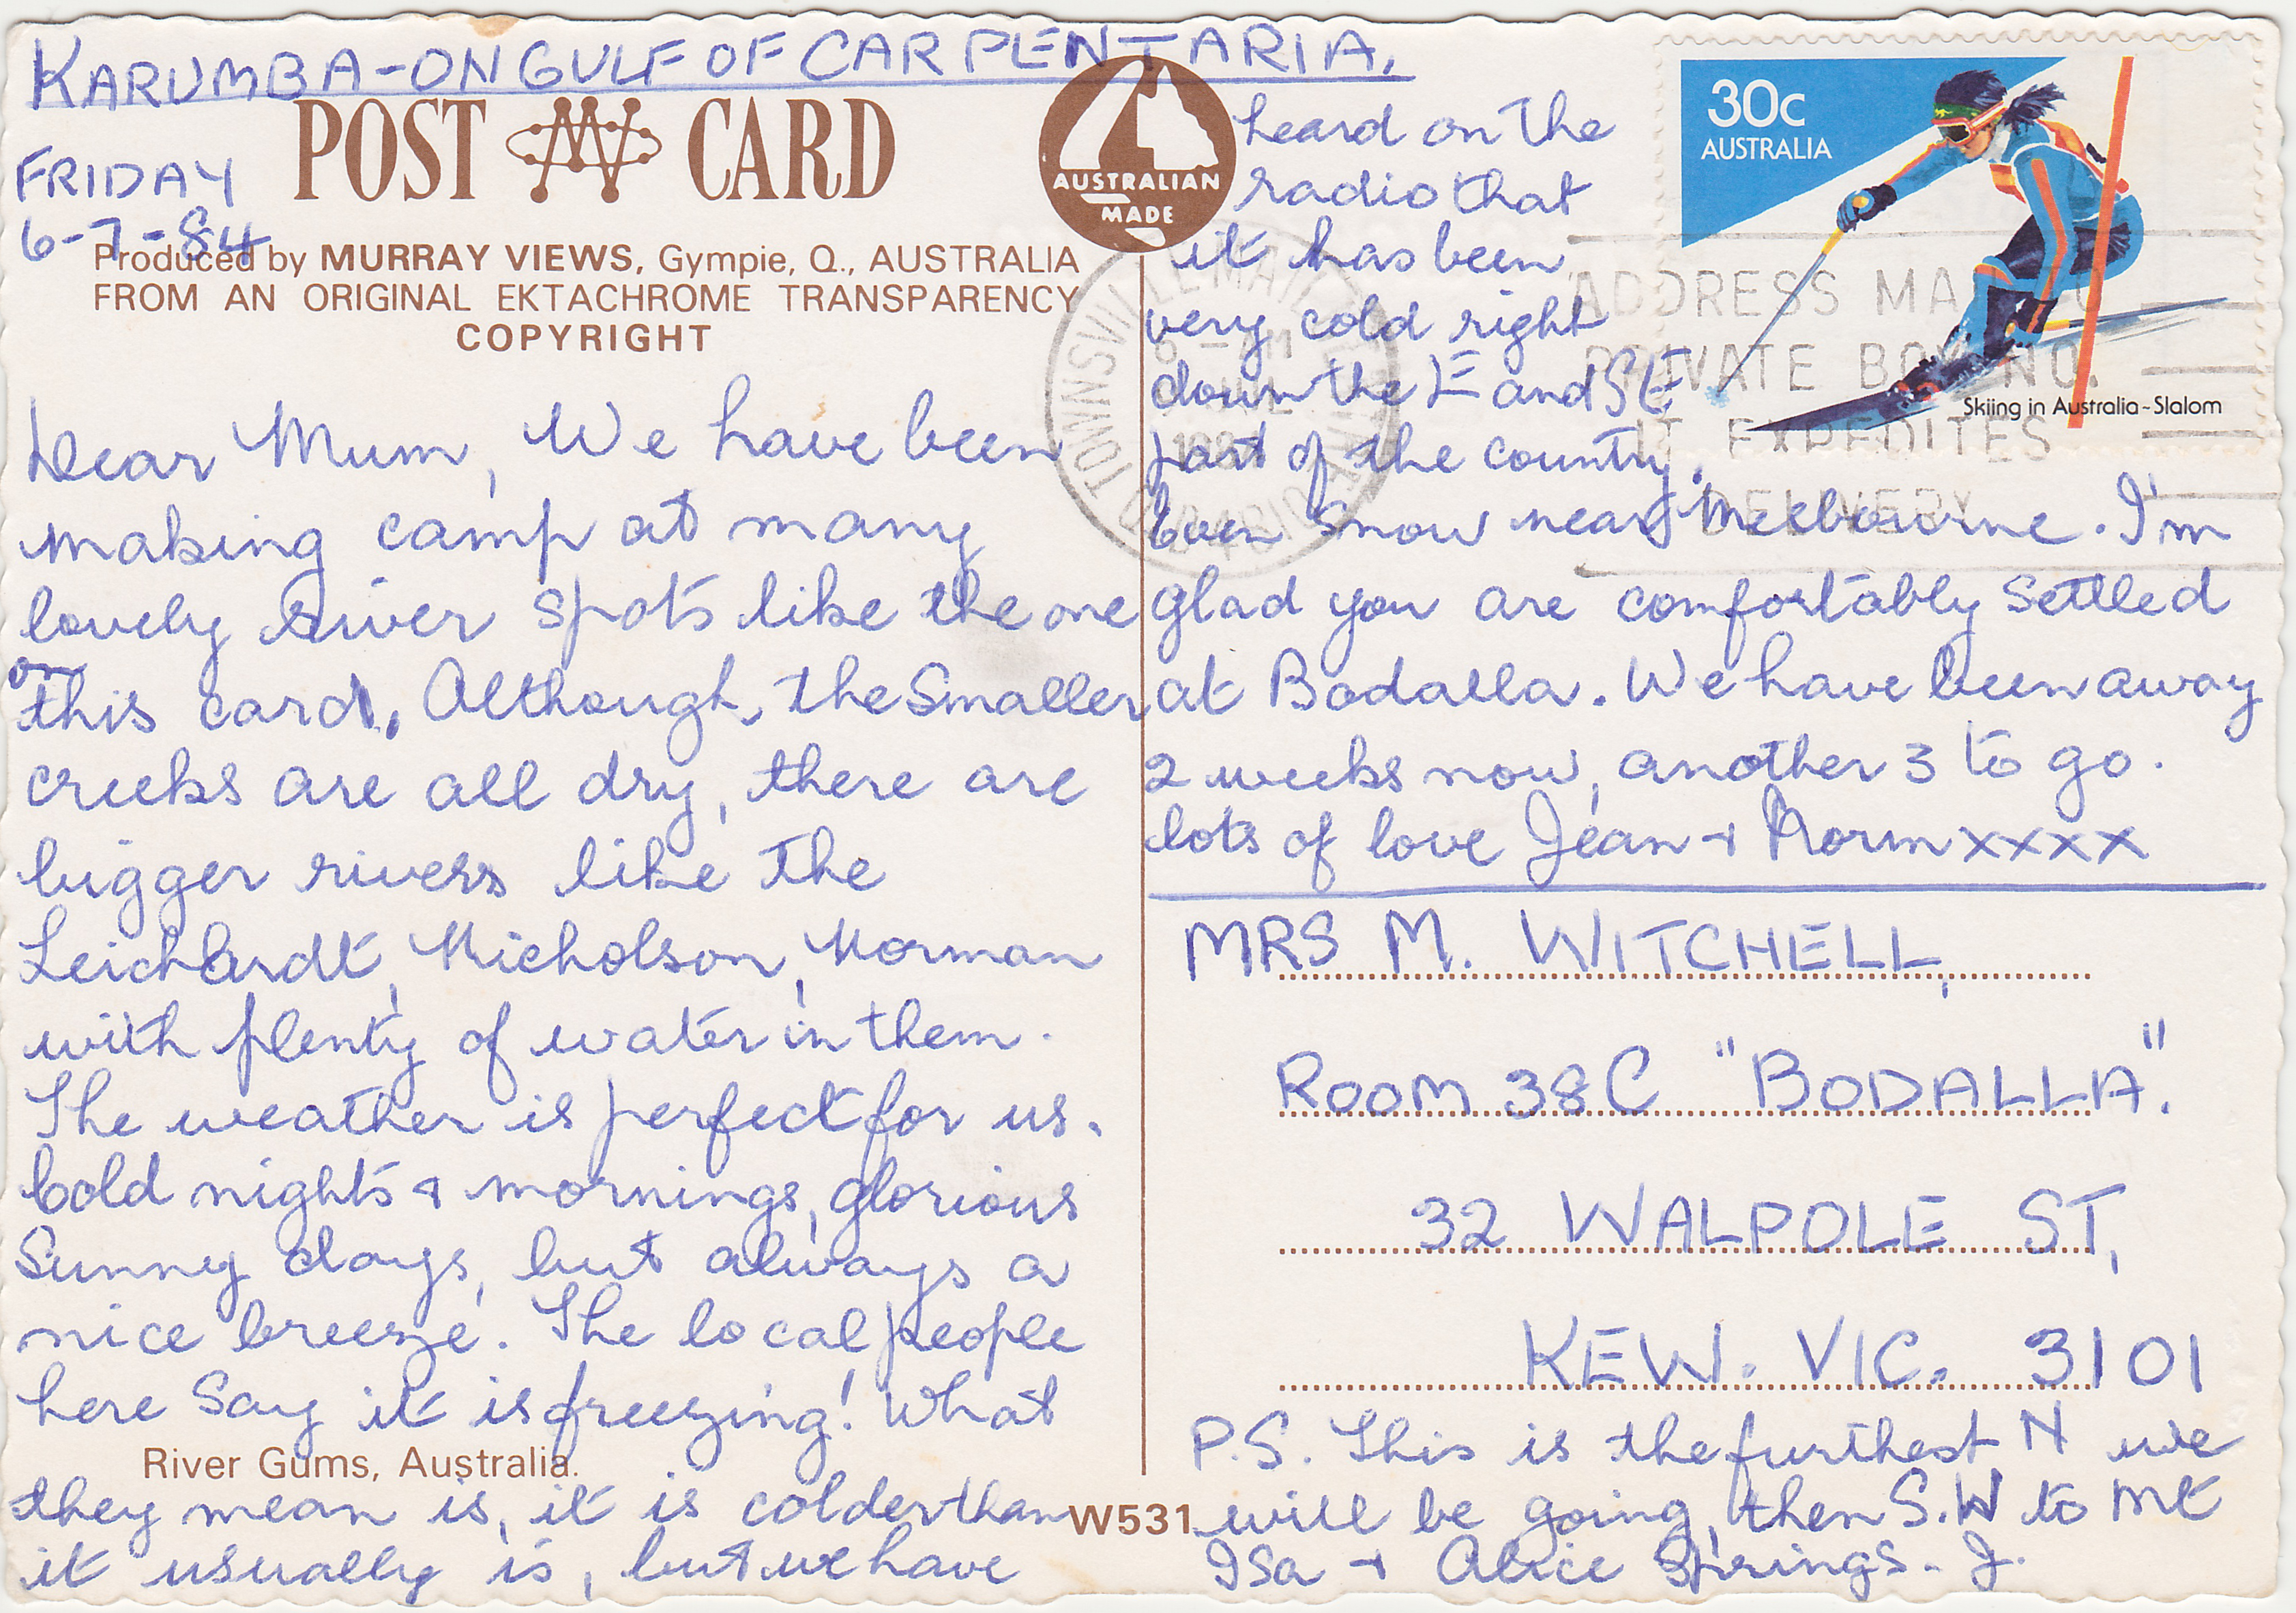 KARUMBA-ON GULF OF CARPENTARIA.
FRIDAY
6-7-84
POST CARD
AUSTRALIAN
MADE
Produced by MURRAY VIEWS, Gympie, Q., AUSTRALIA
FROM AN ORIGINAL EKTACHROME TRANSPARENCY
COPYRIGHT
Dear Mum, We have been
making camp at many
lovely river spots like the one
on
this card. Although, the smaller
creeks are all dry, there are
bigger rivers like the
Leichardt, Nicholson, Norman
with plenty of water in them.
The weather is perfect for us.
Cold nights & mornings, glorious
sunny days, but always a
nice breeze. The local people
here say it is freezing! What
River Gums, Australia.
they mean is, it is colder than
it usually is, but we have
W531
heard on the
radio that
it has been
very cold right
down the E and SE
part of the country.
Even snow near Melbourne. I'm
glad you are comfortably settled
at Bodalla. We have been away
2 weeks now, another 3 to go.
lots of love Jean + Norm xxxx
30c
AUSTRALIA
Skiing in Australia-Slalom
TOWNSVILLE MAIL
JUL
1984
ADDRESS MAIL
PRIVATE BOX NO.
IT EXPEDITES
DELIVERY
MRS M. WITCHELL,
ROOM 38C "BODALLA".
32 WALPOLE ST,
KEW. VIC. 3101
P.S. This is the furthest N we
will be going, then S.W to Mt
Isa + Alice Springs. J.